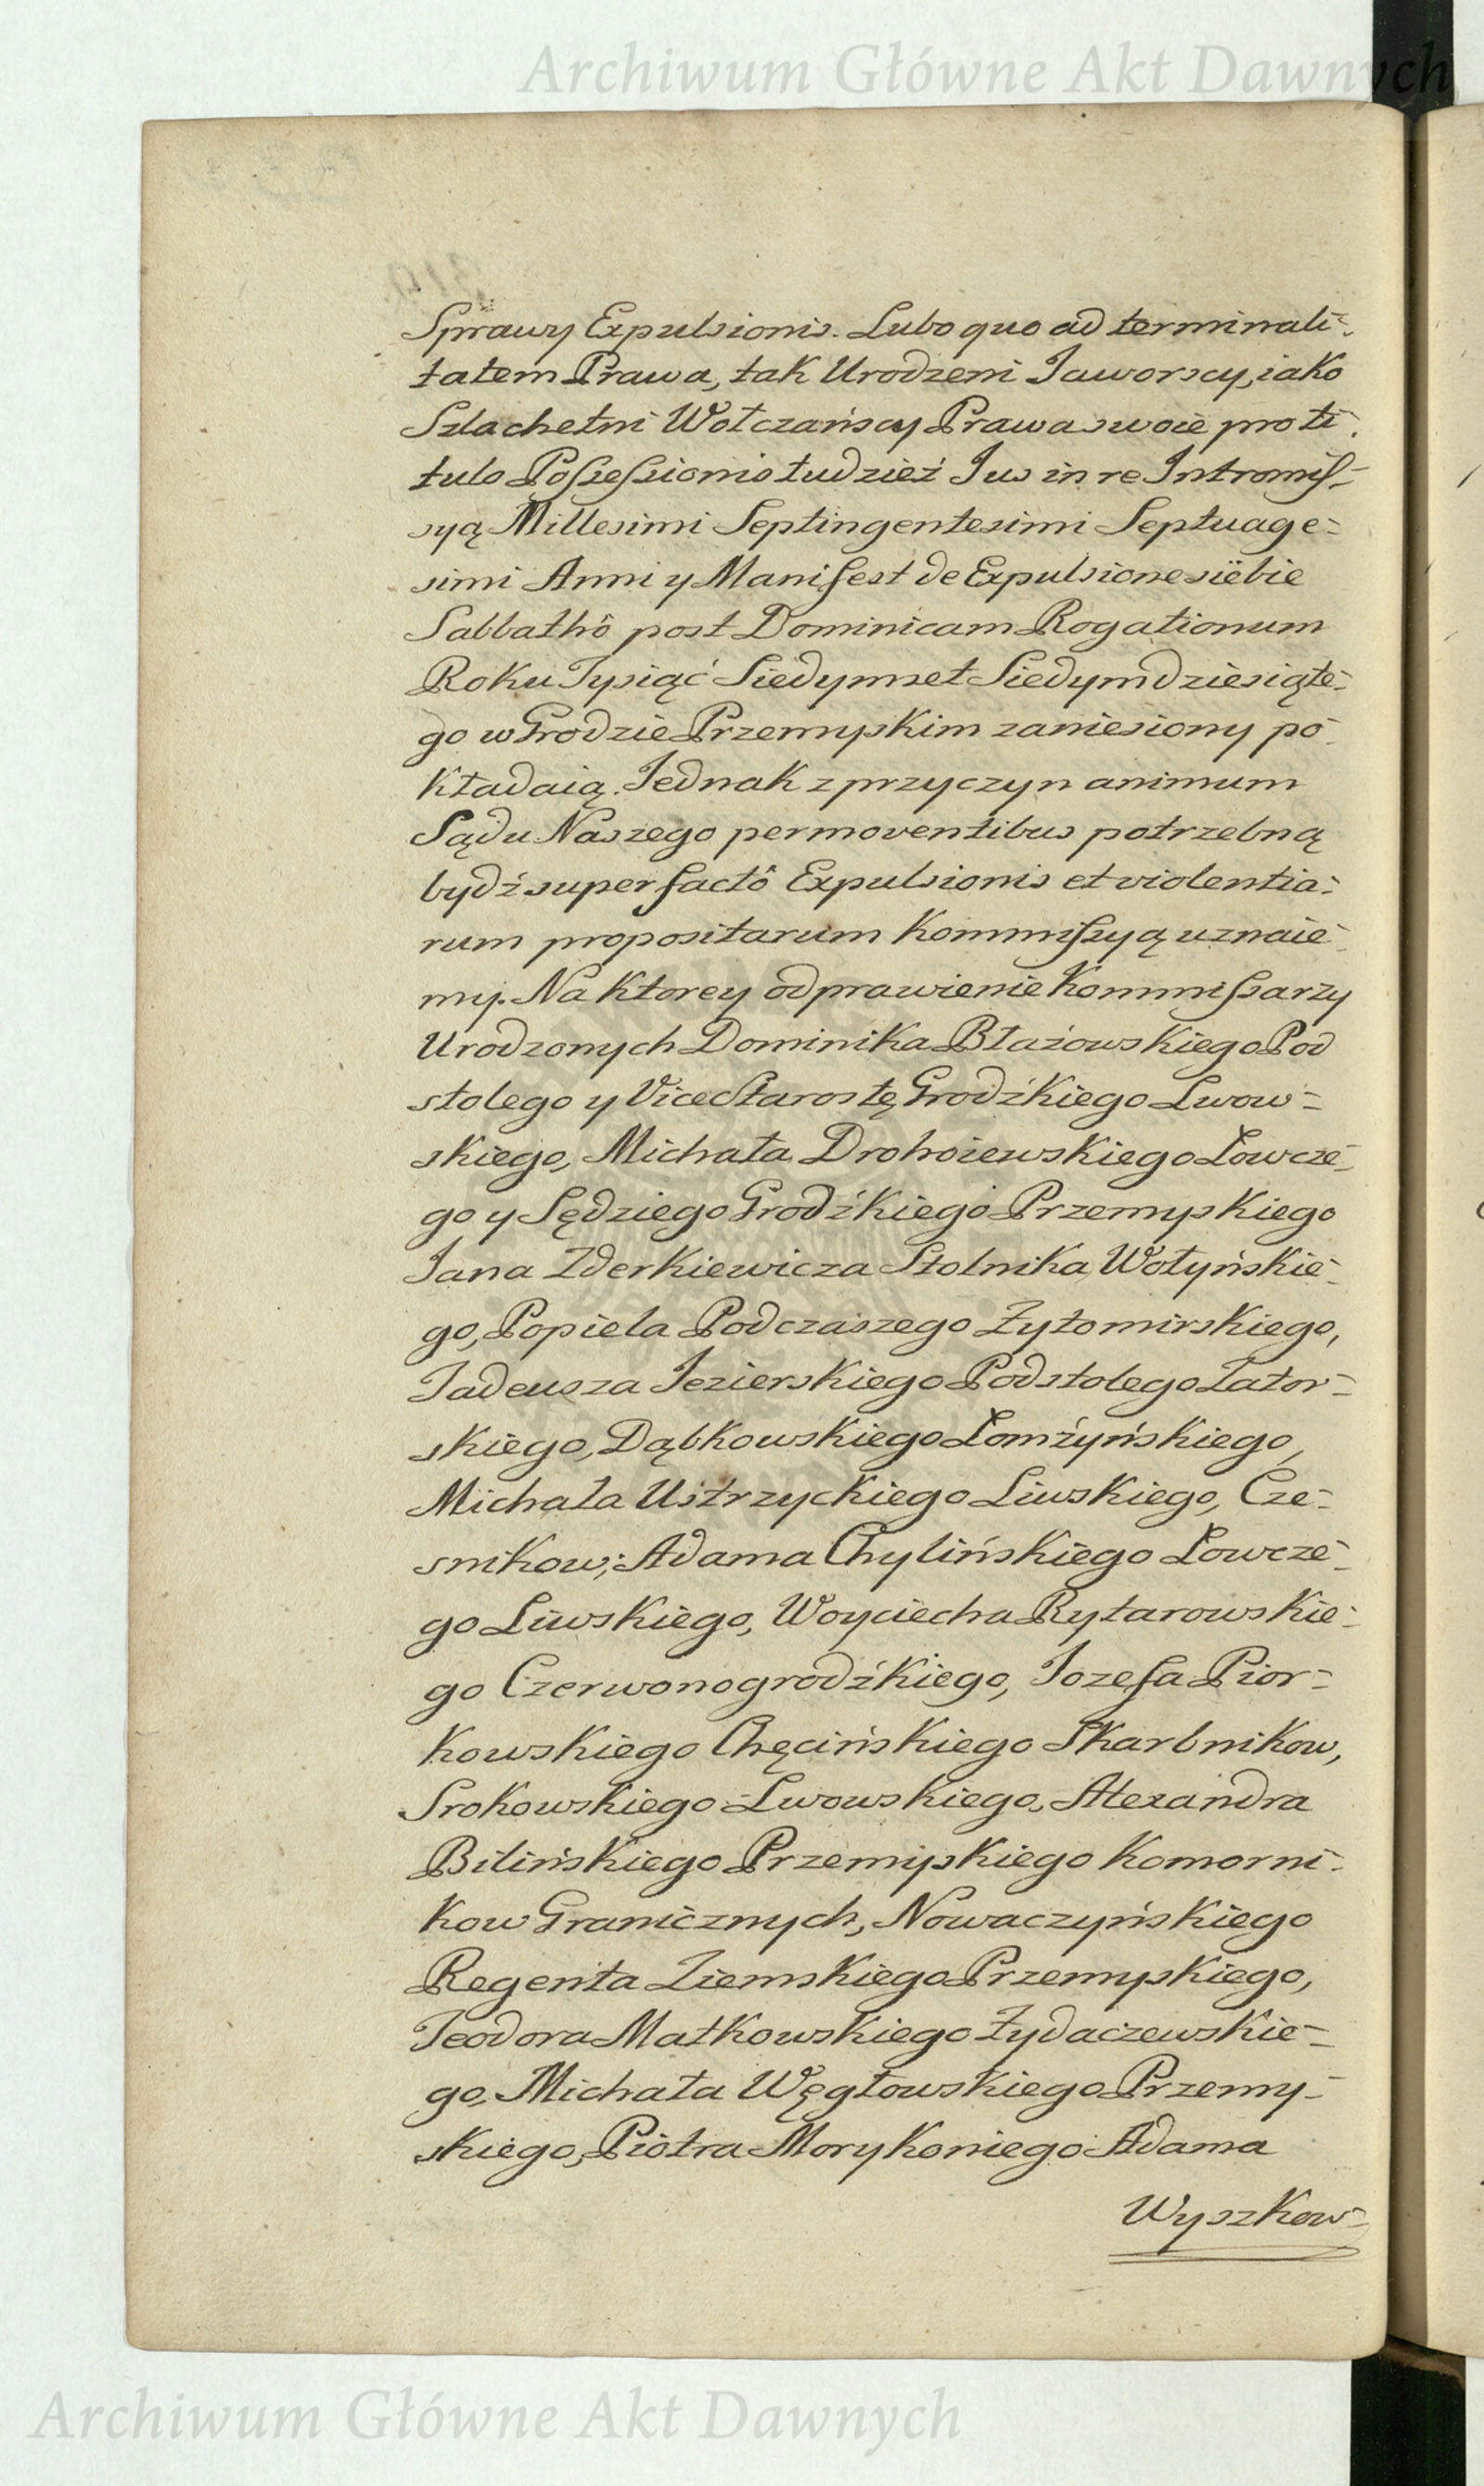 Archiwum Główne Akt Dawnych
Sprawy Expulsionis. Lubo quo ad terminali-
tatem Prawa, tak Urodzeni Jaworscy, iako
Szlachetni Wołczańscy Prawa swoie pro ti-
tulo Possessionis tudzież Jus in re Intromis-
syą Millesimi Septingentesimi Septuage-
simi Anni y Manifest de Expulsione siebie
Sabbathô post Dominicam Rogationum
Roku Tysiąć Siedymset Siedymdziesiąte-
go w Grodzie Przemyskim zaniesiony po-
kładaią. Jednak z przyczyn animum
Sądu Naszego permoventibus potrzebną
bydź super factô Expulsionis et violentia-
rum propositarum Kommissyą uznaie-
my. Na ktorey odprawienie Kommissarzy
Urodzonych Dominika Błażowskiego Pod
stolego y ViceStarostę Grodźkiego Lwow-
skiego, Michała Drohoiewskiego Łowcze-
go y Sędziego Grodźkiego Przemyskiego
Jana Zderkiewicza Stolnika Wołyńskie-
go, Popiela Podczaszego Żytomirskiego,
Tadeusza Jezierskiego Podstolego Zator-
skiego, Dąbkowskiego Łomżyńskiego,
Michała Ustrzyckiego Liwskiego, Cze-
snikow; Adama Chylińskiego Łowcze-
go Liwskiego, Woyciecha Rytarowskie-
go Czerwonogrodźkiego, Jozefa Pior-
kowskiego Chęcińskiego Skarbnikow,
Srokowskiego Lwowskiego, Alexandra
Bilińskiego Przemyskiego Komorni-
kow Granicznych, Nowaczyńskiego
Regenta Ziemskiego Przemyskiego,
Teodora Matkowskiego Żydaczewskie-
go, Michała Węgłowskiego Przemy-
skiego, Piotra Morykoniego Adama
Wyszkow-
Archiwum Główne Akt Dawnych